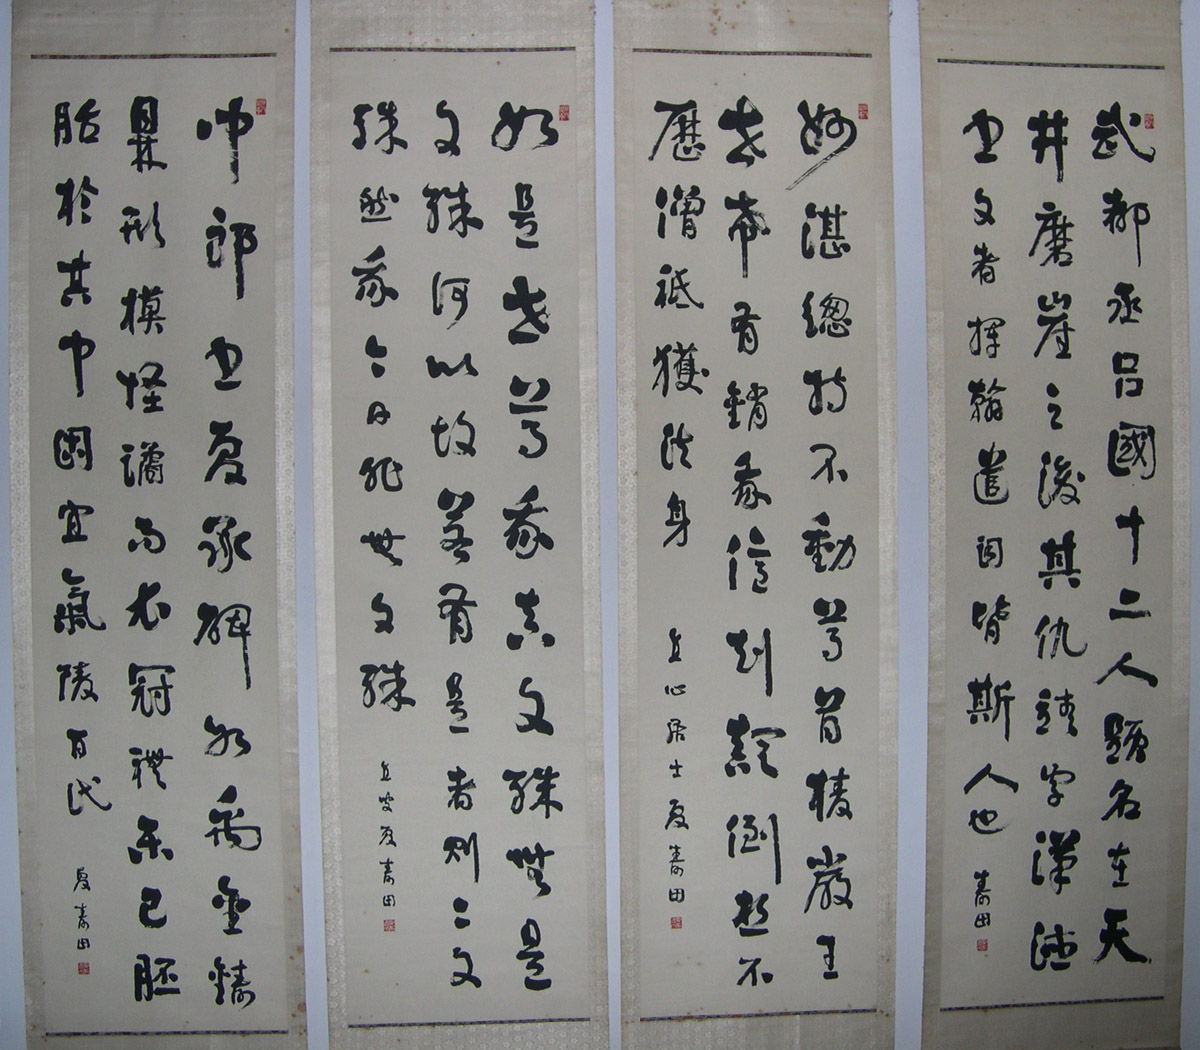 武都丞呂國十二人題名在天
井磨崖之後其仇靖字漢德
書文者揮翰遣詞皆斯人也 壽田
妙湛總持不動尊首楞嚴王
世希有銷我億劫顛倒想不
歷僧祇獲法身 直心居士夏壽田
如是世尊我真文殊無是
文殊何以故若有是者則二文
殊然我今日非無文殊 直叟夏壽田
中郎書夏承碑如禹金鑄
鼎形模怪譎而衣冠禮樂已胚
胎於其中固宜氣陵百代 夏壽田